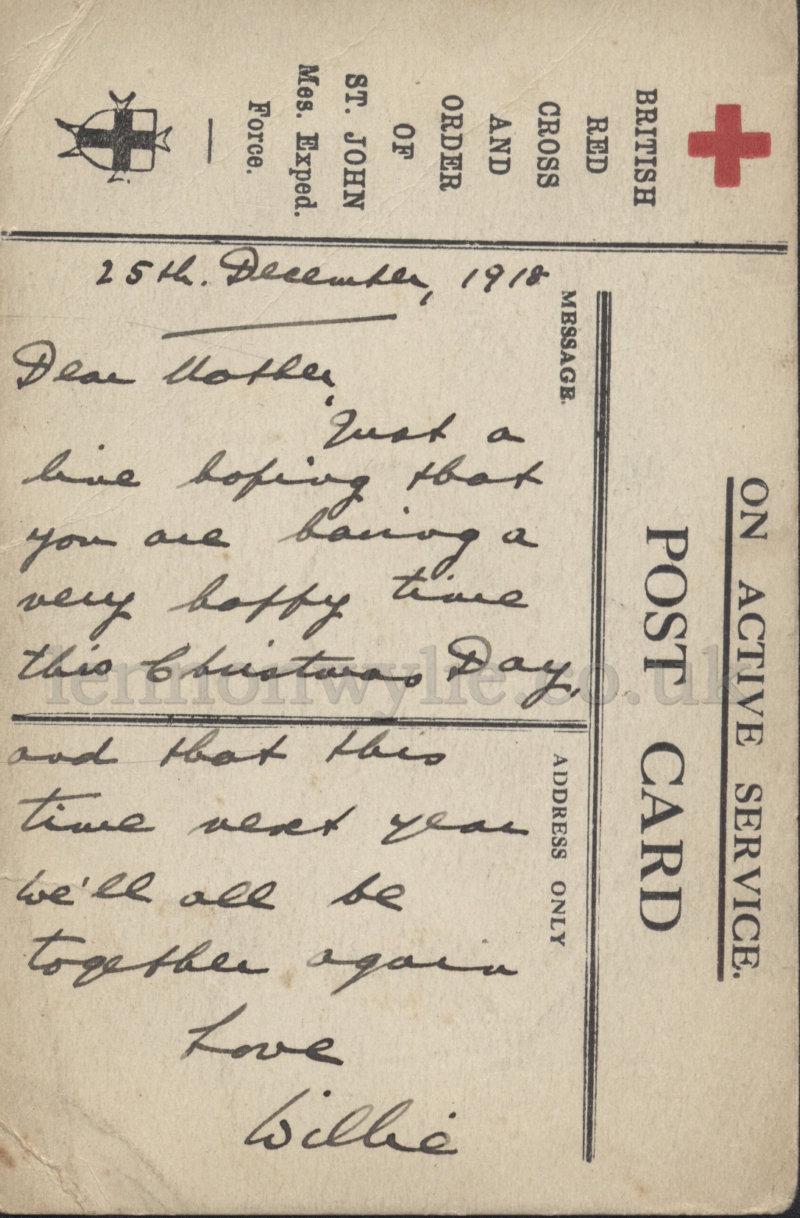 BRITISH
RED
CROSS
AND
ORDER
OF
ST. JOHN
Mes. Exped.
Force.
ON ACTIVE SERVICE.
POST CARD
MESSAGE.
ADDRESS ONLY
25th. December, 1918
Dear Mother,
Just a
line hoping that
you are having a
very happy time
this Christmas Day,
and that this
time next year
we'll all be
together again
Love
Willie
lennonwylie.co.uk